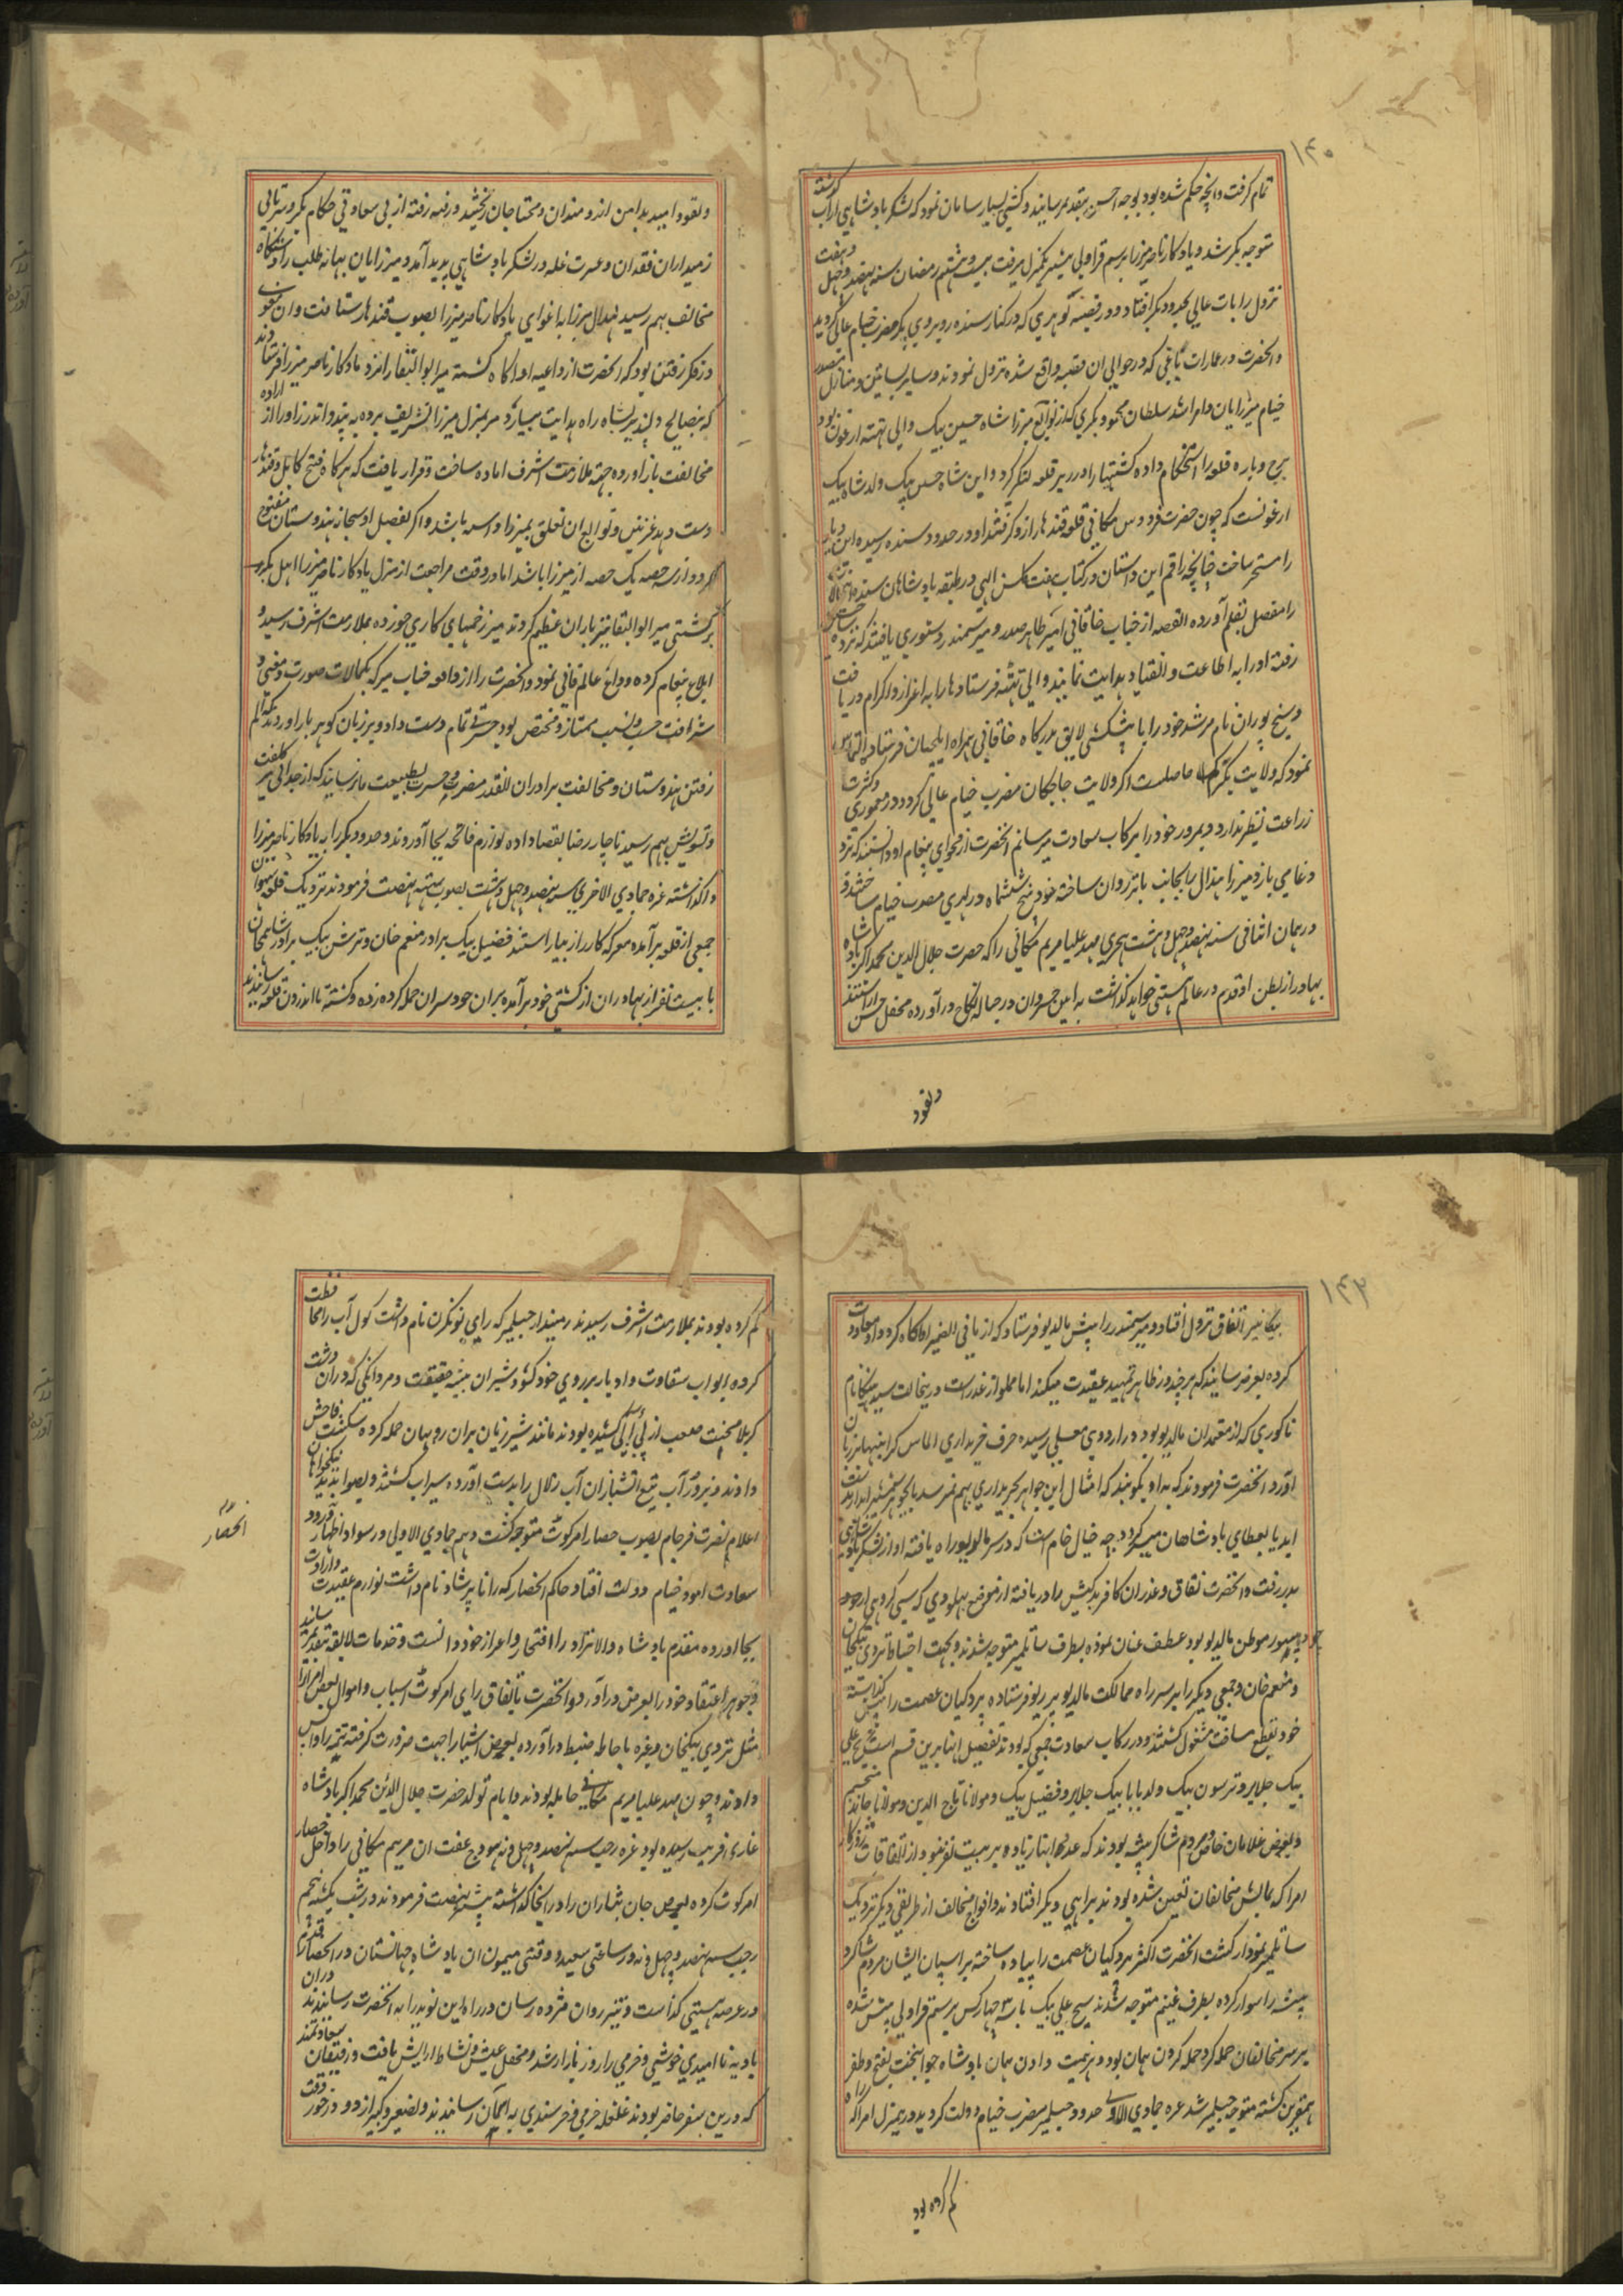 ۱۴۰
تمام گرفت و انچه حکم شده بود بوجه احسن بتقدیم رسانیند و کشتی بسیار سامان نمود که لشکر بادشاهی از آب گذشته
متوجه بکر شد و یادکار ناصر میرزا برسم قراولی پیشتر یکمنزل میرفت بیست و هشتم رمضان سنه نهصد و چهل و هفت
نزول رایات عالی بحدود بکر افتاد و در قصبه لوهری که در کنار سنده روبروی بکر مضرب خیام عالی گردید
و انحضرت در عمارات باغی که در حوالی ان قصبه واقع شده نزول نمودند و سایر بساتین و منازل
خیام میرزایان و امرا شد سلطان محمود بکری که از توابع میرزا شاه حسین بیک والی تهته ارغون بود
برج و باره قلعه را استحکام داده کشتیها را در زیر قلعه لنکر کرد و این شاه حسین بیک ولد شاه بیک
ارغونست که چون حضرت فردوس مکانی قلعه قندهار از و گرفتند او در حدود سنده رسیده این
را مسخر ساخت چنانچه راقم این داستان در کتاب هفت کلشن الهی در طبقه بادشاهان سند
را مفصل بقلم آورده القصه از جناب خاقانی امیر طاهر صدر و میر سمندر دستوری یافتند که نزد
رفته او را به اطاعت و انقیاد هدایت نمایند والی تهته فرستادها را به اعزاز و اکرام دریافت
و شیخ پوران نام مرشد خود را با پیشکشی لایق بدرکاه خاقانی همراه ایلچیان فرستاده التماس
نمود که ولایت بکر کم حاصلست اکر ولایت جاجکان مضرب خیام عالی کردد در معموری و کثرت
زراعت نظیر ندارد و بمرور خود را برکاب سعادت میرسانم انحضرت از فحوای پیغام او دانستند که تزو
دغا می بازد میرزا هندال را بجانب باتر روان ساخته خود پنج ششماه در لهری مضرب خیام ساختند
در همان اثنا فی سنه نهصد و چهل و هشت هجری مهد علیا مریم مکانی را که حضرت جلال الدین محمد اکبر بادشاه
بهادر از بطن او قدم در عالم هستی خواهد گذاشت به ایین خسروان در حباله نکاح درآورده محفل جشن اراستند
ونقود
ونقود امید بدامن ازومندان و محتاجان بخشید و رفته رفته از بی سعادتی حکام بکر و سرتابی
زمیداران فقدان و عسرت غله در لشکر بادشاهی پدید آمد و میرزایان بهانه طلب را دستکاه
مخالفت بهم رسید هندال میرزا به اغوای یادکار ناصر میرزا بصوب قندهار شتافت و ان
در فکر رفتن بود که انحضرت از داعیه او آکاه گشته میر ابوالبقا را نزد یادکار ناصر میرزا فرستادند
که بنصایح دلپذیر بشاه راه هدایت بسپارد میر بمنزل میرزا تشریف برده به پند و اندرز او را از اراده
مخالفت باز آورده جهته ملازمت اشرف اماده ساخت و قرار یافت که هرکاه فتح کابل و قندهار
دست دهد غزنین و توابع ان تعلق بمیرزا داسه باشد و اکر بفضل او سبحانه هندوستان مفتوح
کردد از سه حصه یک حصه از میرزا باشد اما در وقت مراجعت از منزل یادکار ناصر میرزا اهل بکر
برکشتی میر ابوالبقا تیر باران عظیم کردند میر زخمهای کاری خورده بملازمت اشرف رسید و
ابلاغ پیغام کرده وداع عالم فانی نمود و انحضرت را از واقعه جناب میر که بکمالات صورت و معنی و
شرافت حسب و نسب ممتاز و مختص بود حسرتی تمام دست داد و بر زبان کوهر بار اوردند که الم
رفتن هندوستان و مخالفت برادران انقدر مضرت و حسرت بطبیعت ما نرسانید که از جدائی میر کلفت
و تشویش بهم رسید ناچار رضا بقضا داده لوازم فاتحه بجا آوردند و حدود بکر را به یادکار ناصر میرزا
واکذاشته غره جمادی الاخری سنه نهصد و چهل و هشت بصوب تهته نهضت فرمودند نزدیک قلعه سیهوان
جمعی از قلعه برآمده معرکه کارزار بیاراستند فضیل بیک برادر منعم خان و ترش بیک برادر شاهم خان
با بیست نفر از بهادران از کشتی خود برآمده بران خودسران حمله کرده زده و کشته تا اندرون قلعه رسانیدند
۱۴۲
بیکانیر اتفاق نزول افتاد و میر سمندر را پیش مالدیو فرستاد که از مافی الضمیر او آکاه کردد او معاودت
کرده بعرض رسانید که هرچند در ظاهر تمهید عقیدت میکند اما مملو از غدرست درینحالت سیسنکا نام
ناکوری که از معتمدان مالدیو بوده در اردوی معلی رسیده حرف خریداری الماس کرانبها بر زبان
آورد انحضرت فرمودند که به او بکویند که امثال این جواهر بخریداری بهم نمیرسد
اید یا بعطای بادشاهان میسر کردد چه خیال خام است که در سر مالدیو راه یافته او از لشکر
بدر رفت و انحضرت نفاق و غدر ان کافر بدکیش را دریافته از موضع پهلودی که سی کروهی از جود
جودهپور موطن مالدیو بود عطف عنان نموده بطرف ساتلمیر متوجه شدند و بجهت احتیاط تردی بیکخان
و منعم خان و جمعی دیکر را بر سر راه ممالک مالدیو بدیو فرستاده پردکیان عصمت را پیش گذاشته
خود بقطع مسافت مشغول کشتند و در رکاب سعادت جمعی که بودند تفصیل اینها برین قسم است شیخ علی
بیک جلایر و ترسون بیک ولد بابا بیک جلایر و فضیل بیک و مولانا تاج الدین و مولانا چاند منجم
و بعضی غلامان خاص و مردم شاکرد پیشه بودند که عدد انها زیاده بر بیست نفر نبود از اتفاقات
امرا که بمالش مخالفان تعین شده بودند براهی دیکر افتادند و افواج مخالف از طریقی دیکر نزدیک
ساتلمیر نمودار کشت انحضرت اکثر پردکیان عصمت را پیاده ساخته بر اسپان ایشان مردم شاکرد
پیشه را سوار کرده بطرف غنیم متوجه شدند شیخ علی بیک با سه چهار کس برسم قراولی پیش شده
بر سر مخالفان حمله کرد حمله کردن همان بود و هزیمت دادن همان بادشاه جوانبخت بفتح و ظفر
همقرین گشته متوجه جیسلمیر شد غره جمادی الاولی حدود جیسلمیر مضرب خیام دولت کردید درینمنزل امرا که راه
کم کرده بود
کم کرده بودند بملازمت اشرف رسیدند زمیندار جیسلمیر که رای لونکرن نام داشت کول آب را محافظت
کرده ابواب شقاوت و ادبار بر روی خود کشود شیران بیشه حقیقت و مردانکی که دران دشت
کربلا محنت صعب از بی آبی کشیده بودند مانند شیر ژیان بران روبهان حمله کرده شکست فاحش
دادند و بزور آب تیغ اتشباران آب زلال را بدست آورده سیراب کشتند و بصوابدید نیکخواهان
اعلام نصرت فرجام بصوب حصار امرکوٹ متوجه کشت دهم جمادی الاولی در سواد اطهار
سعادت امود خیام دولت افتاد حاکم انحصار که رانا پرشاد نام داشت لوازم عقیدت و ارادت
بجا اورده مقدم بادشاه والانژاد را افتخار و اعزاز خود دانست و خدمات لایقه بتقدیم رسانید
و جوهر اعتقاد خود را بعرض درآورد و انحضرت باتفاق رای امرکوٹ اسباب و اموال بعض امرا را
مثل تردی بیکخان وغیره باحاطه ضبط درآورده بعوض اشیا را جهت ضرورت گرفته تتمه را واپس
دادند و چون مهد علیا مریم مکانی حامله بودند و ایام تولد حضرت جلال الدین محمد اکبر بادشاه
غازی قریب رسیده بود غره رجب سنه نهصد و چهل و نه هودج عفت ان مریم مکانی را داخل حصار
امرکوت کرده بعوض جان نثاران را در انجا کذاشته پیشتر نهضت فرمودند و در شب یکشنبه پنجم
رجب سنه نهصد و چهل و نه در ساعتی سعید و وقتی میمون ان بادشاه جهانستان در انحصار قدم
در عرصه هستی کذاست و تیز روان مژده رسان در راه این نوید را به انحضرت رسانیدند دران
بادیه ناامیدی خوشی و خرمی را روز بازار شد و محفل عیش و نشاط ارایش یافت و رفیقان سعادتمند
که درین سفر حاضر بودند غلغله خرمی و خرسندی به آسمان رسانیدند و صغیر و کبیر از دور و درخور وقت
انحصار